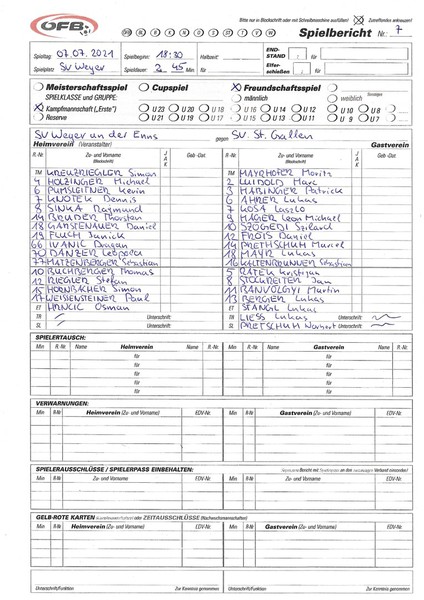 Bitte nur in Blockschrift oder mit Schreibmaschine ausfüllen! Zutreffendes ankreuzen!
ÖFB
B K N O S St T V W
Spielbericht Nr.: 7
Spieltag: 07.07.2021 Spielbeginn: 18:30 Halbzeit:
END-STAND :
Spielplatz SV Weyer Spieldauer 2x45 Min für
Elfer-schießen : für
Meisterschaftsspiel Cupspiel Freundschaftsspiel
SPIELKLASSE und GRUPPE: männlich weiblich Sonstiges
Kampfmannschaft („Erste“) U 23 U 20 U 18 U 16 U 14 U 12 U 10 U 8
Reserve U 21 U 19 U 17 U 15 U 13 U 11 U 9 U 7
SV Weyer an der Enns gegen SV. St. Gallen
Heimverein (Veranstalter) Gastverein
R.-Nr. Zu- und Vorname (Blockschrift) J A K Geb.-Dat. R.-Nr. Zu- und Vorname (Blockschrift) J A K Geb.-Dat.
TM KREUZRIEGLER Simon TM MAYRHOFER Moritz
4 HOLZINGER Michael 2 LUIDOLD Marc
6 PUMSLEITNER Kevin 3 HABINGER Patrick
7 KNOTEK Dennis 6 AHRER Lukas
8 SINKA Raymund 7 KOSA Laszlo
14 BRUDER Thorsten 9 MAGER Leon Michael
18 GARSTENAUER Daniel 10 SZÖGEDI Szilard
19 FLUCH Janick 12 FROIS Daniel
66 IVANIC Dragan 14 PRETSCHUH Marcel
70 DANZER Leopold 18 MAYR Lukas
77 MATZENBERGER Sebastian 16 KALTENBRUNNER Sebastian
10 BUCHBERGER Thomas 5 RATEK Kristijan
12 RIEGLER Stefan 8 STOCKREITER Jan
15 HORNBACHER Simon 11 BANVÖLGYI Martin
17 WEISSENSTEINER Paul 13 BERGER Lukas
ET HANCIC Osman ET STANGL Lukas
TR Unterschrift: TR LIESS Lukas Unterschrift:
SL Unterschrift: SL PRETSCHUH Norbert Unterschrift:
SPIELERTAUSCH:
Min R.-Nr. Name Heimverein Name R.-Nr. Min R.-Nr. Name Gastverein Name R.-Nr.
für für
für für
für für
für für
VERWARNUNGEN:
Min R-Nr Heimverein (Zu- und Vorname) EDV-Nr. Min R-Nr Gastverein (Zu- und Vorname) EDV-Nr.
SPIELERAUSSCHLÜSSE / SPIELERPASS EINBEHALTEN:
Min R-Nr Heimverein (Zu- und Vorname) EDV-Nr. Min R-Nr Gastverein (Zu- und Vorname) EDV-Nr.
GELB-ROTE KARTEN oder ZEITAUSSCHLÜSSE (Nachwuchsmannschaften)
Min R-Nr Heimverein (Zu- und Vorname) EDV-Nr. Min R-Nr Gastverein (Zu- und Vorname) EDV-Nr.
Unterschrift/Funktion Zur Kenntnis genommen Unterschrift/Funktion Zur Kenntnis genommen